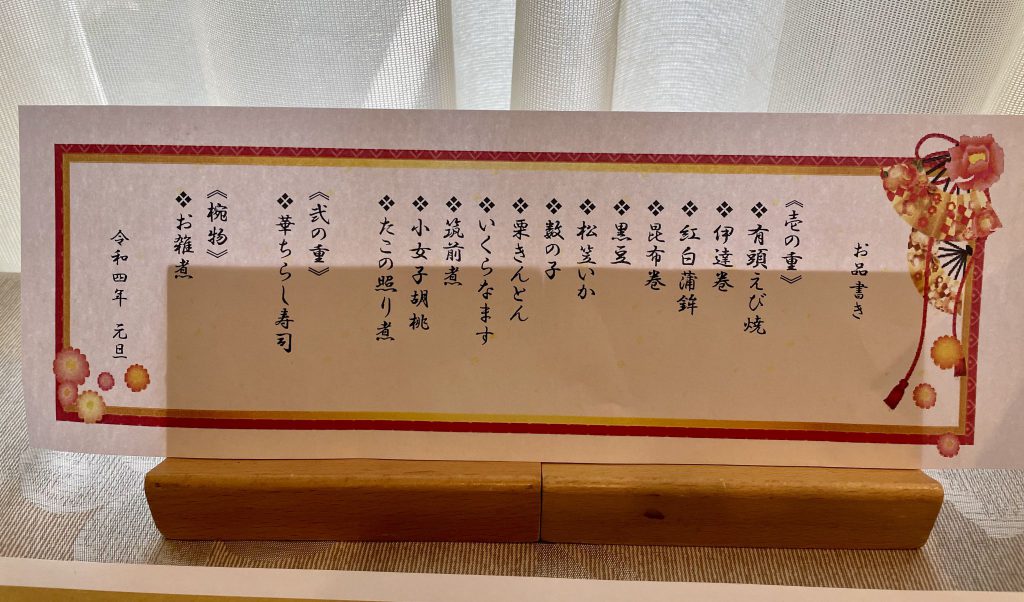 お品書き
《壱の重》
❖有頭えび焼
❖伊達巻
❖紅白蒲鉾
❖昆布巻
❖黒豆
❖松笠いか
❖数の子
❖栗きんとん
❖いくらなます
❖筑前煮
❖小女子胡桃
❖たこの照り煮
《弐の重》
❖華ちらし寿司
《椀物》
❖お雑煮
令和四年 元旦